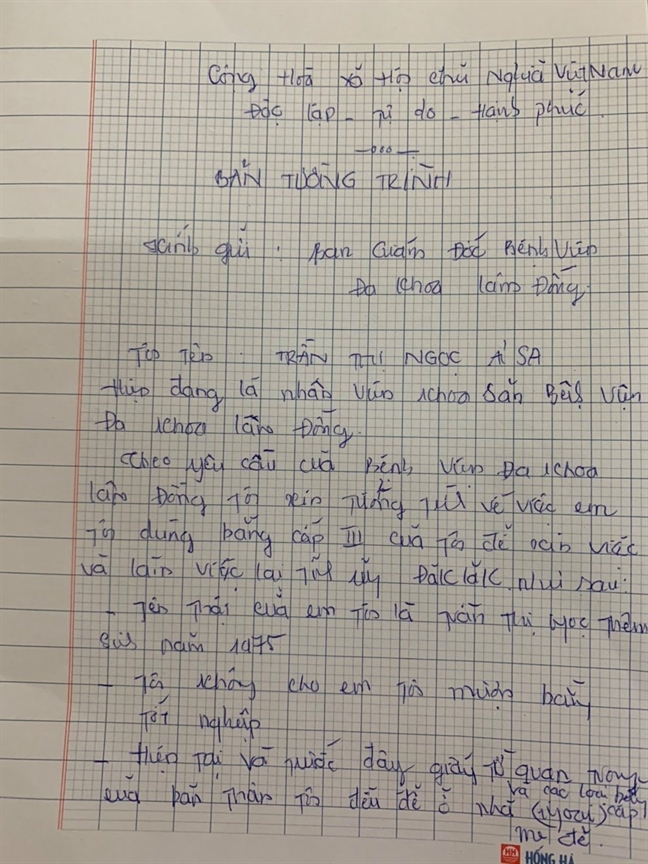 Cộng Hoà Xã Hội Chủ Nghĩa Việt Nam
Độc lập - Tự do - Hạnh phúc
BẢN TƯỜNG TRÌNH
Kính gửi : Ban Giám Đốc Bệnh Viện
Đa khoa Lâm Đồng.
Tôi tên : TRẦN THỊ NGỌC ÁI SA
Hiện đang là nhân viên khoa Sản Bệnh Viện
Đa khoa Lâm Đồng.
Theo yêu cầu của Bệnh Viện Đa khoa
Lâm Đồng tôi xin tường trình về việc em
tôi dùng bằng cấp III của tôi để xin việc
và làm việc tại Tỉnh ủy Đắk Lắk như sau:
- Tên thật của em tôi là Trần Thị Ngọc Thêm
sinh năm 1975
- Tôi không cho em tôi mượn bằng
tốt nghiệp
- Hiện tại và trước đây giấy tờ quan trọng
và các loại bằng
của bản thân tôi đều để ở nhà cấp
mẹ đẻ.
HH HỒNG HÀ